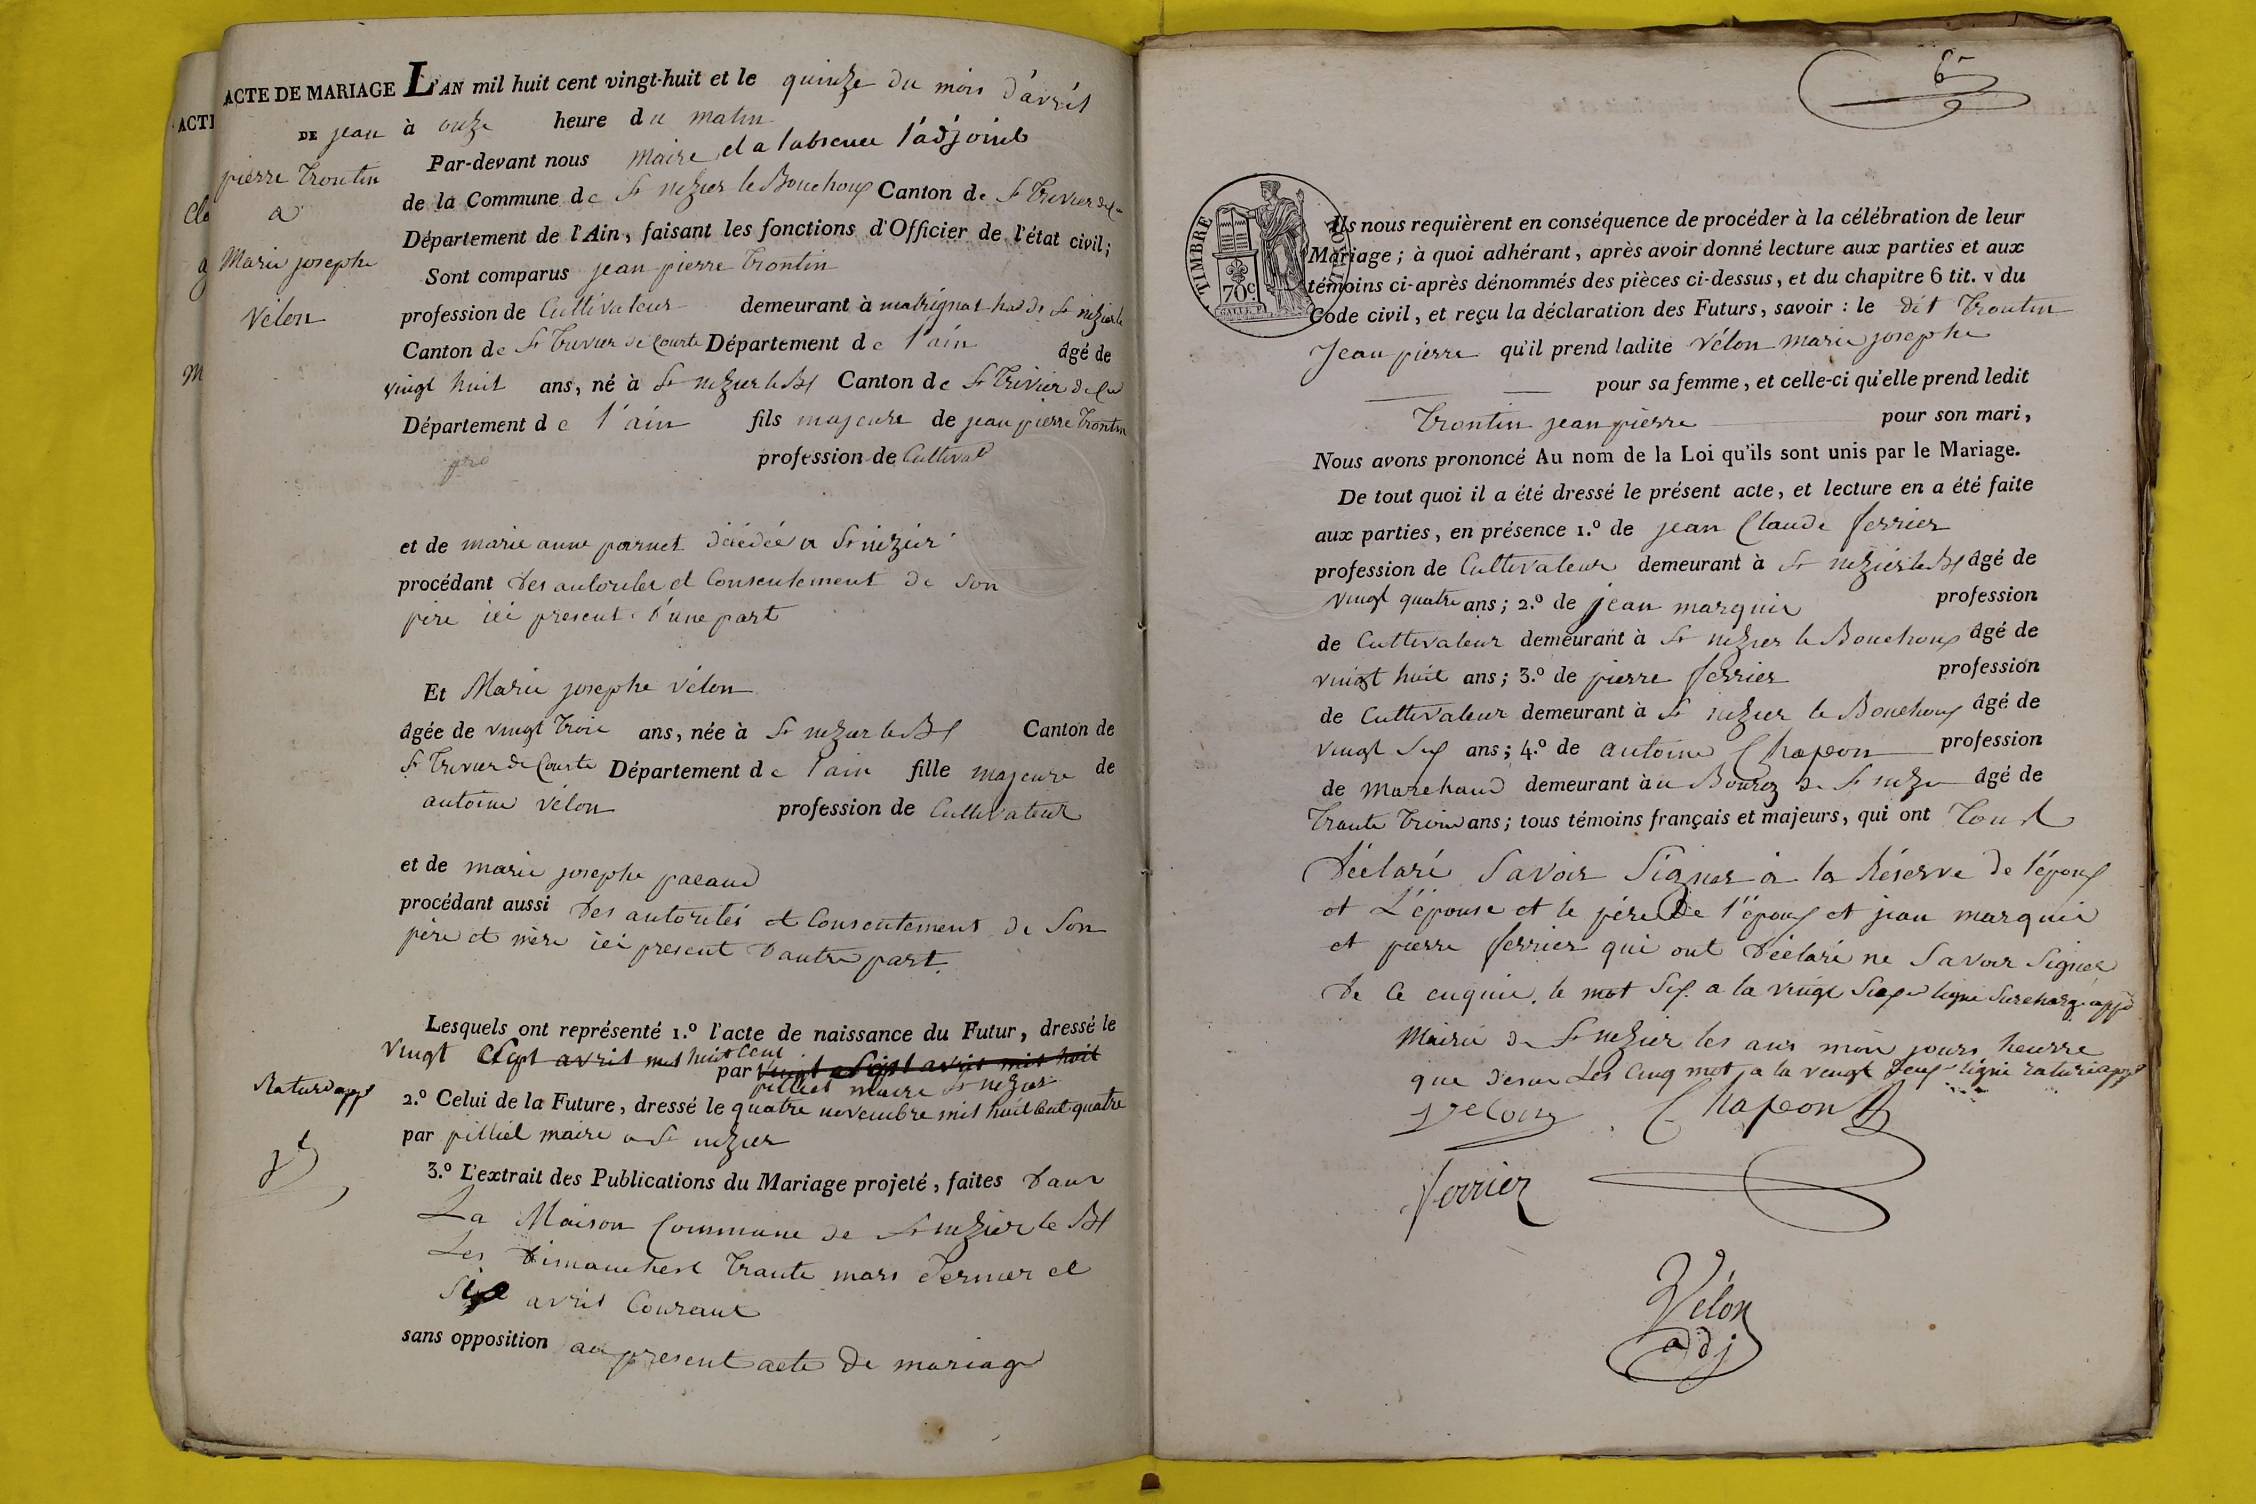 ACTE DE MARIAGE
DE jean
pierre trontin
a
Marie josephe
vélon
L'AN mil huit cent vingt-huit et le quinze du mois d'avril
à onze heure du matin
Par-devant nous maire et a l'absence l'adjoint
de la Commune de St nezier le Bouchoux Canton de St trivier de
Département de l'Ain, faisant les fonctions d'Officier de l'état civil;
Sont comparus jean pierre trontin
profession de Cultivateur demeurant à matrignat had de St nezier le
Canton de St trivier de Courte Département de l'ain âgé de
vingt huit ans, né à St nezier le Bx Canton de St trivier de Cou
Département de l'ain fils majeure de jean pierre trontin
profession de Cultivat
et de marie anne pornet décédée a St nezier
procédant des autorités et Consentement de son
père ici present d'une part
Et Marie josephe vélon
âgée de vingt trois ans, née à St nezier le Bx Canton de
St trivier de Courte Département de l'ain fille majeure de
antoine vélon profession de Cultivateur
et de marie josephe pacaud
procédant aussi des autorités et Consentement de son
père et mère ici present d'autre part.
Lesquels ont représenté 1.º l'acte de naissance du Futur, dressé le
vingt sept avril mil huit Cent
par vingt sept avril mil huit
pilliet maire St nezier
Raturé app
2.º Celui de la Future, dressé le quatre novembre mil huit Cent quatre
par pilliet maire a St nezier
3.º L'extrait des Publications du Mariage projeté, faites dans
La Maison Commune de St nezier le Bx
Les dimanches trante mars dernier et
six avril Courant
sans opposition au present acte de mariage
ACTE
Cla
M
6
TIMBRE ROYAL
70c
Ils nous requièrent en conséquence de procéder à la célébration de leur
Mariage; à quoi adhérant, après avoir donné lecture aux parties et aux
témoins ci-après dénommés des pièces ci-dessus, et du chapitre 6 tit. v du
Code civil, et reçu la déclaration des Futurs, savoir: le dit trontin
Jean pierre qu'il prend ladite vélon marie josephe
pour sa femme, et celle-ci qu'elle prend ledit
trontin jean pierre pour son mari,
Nous avons prononcé Au nom de la Loi qu'ils sont unis par le Mariage.
De tout quoi il a été dressé le présent acte, et lecture en a été faite
aux parties, en présence 1.º de jean Claude ferrier
profession de Cultivateur demeurant à St nezier le Bx âgé de
vingt quatre ans; 2.º de jean marquis profession
de Cultivateur demeurant à St nezier le Bouchoux âgé de
vingt huit ans; 3.º de pierre ferrier profession
de Cultivateur demeurant à St nezier le Bouchoux âgé de
vingt six ans; 4.º de antoine Chapeon profession
de marchand demeurant à u Bourg de St nezier âgé de
trante trois ans; tous témoins français et majeurs, qui ont tous
déclaré savoir signer a la Réserve de l'époux
et L'épouse et le père de l'époux et jean marquis
et pierre ferrier qui ont déclaré ne savoir signer
de ce enquis. le mot six. a la vingt siexe ligne surchargé app
Mairie de St nezier les ans mois jours heurre
que desus Les Cinq mot a la vingt neuf ligne raturé app
Velon Chapeon
ferrier
Vélon
adj